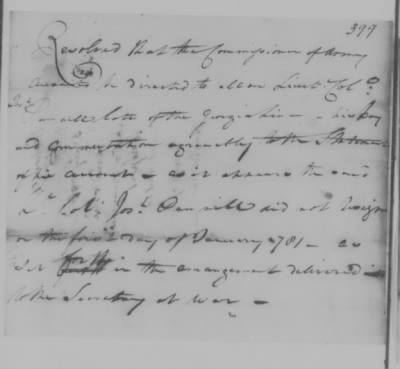 399
Resolved that the Commissioner of Army
Accounts be directed to allow Lieut Col.º
late of the Georgia line his pay
and Commutation agreeably to the Statement
of his account as it appears the said
Lt. Colº Josh Pannill did not resign
on the first day of January 1781 — as
set forth in the arrangement delivered in
to the Secretary at War —